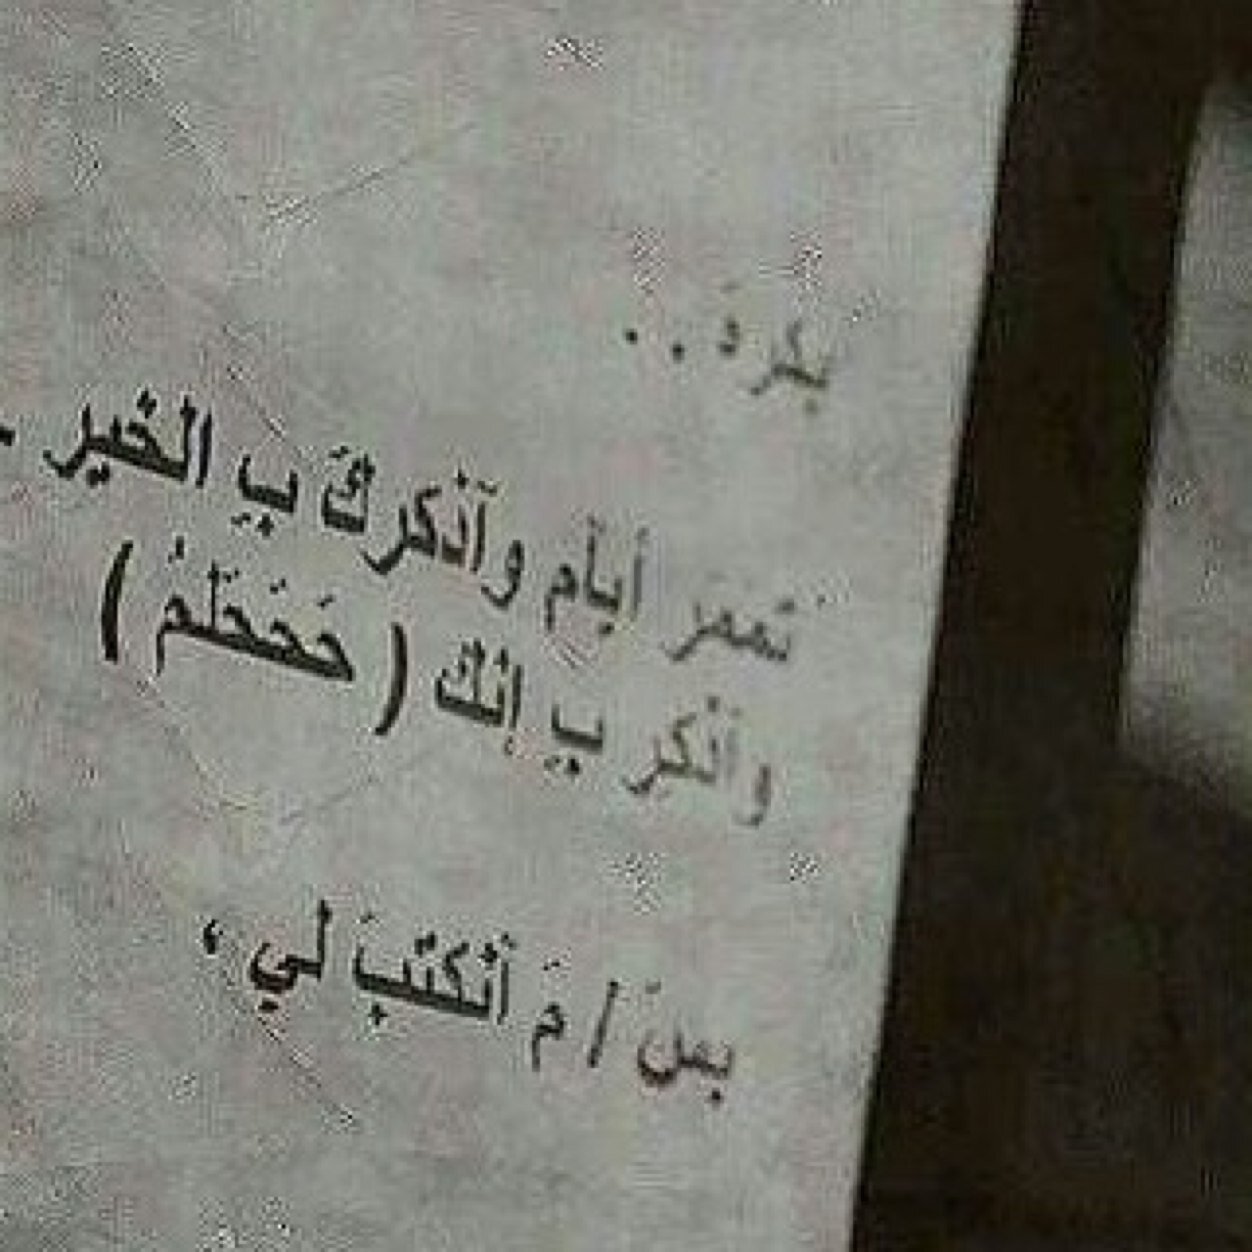 بكرهَ . .
تمَمَر أيآم وآذكركَ بِ الخير .
وآذكر بِ اِنك ( حَخُظَلمُ )
بسَ / مَ أنكتبَ لي ،